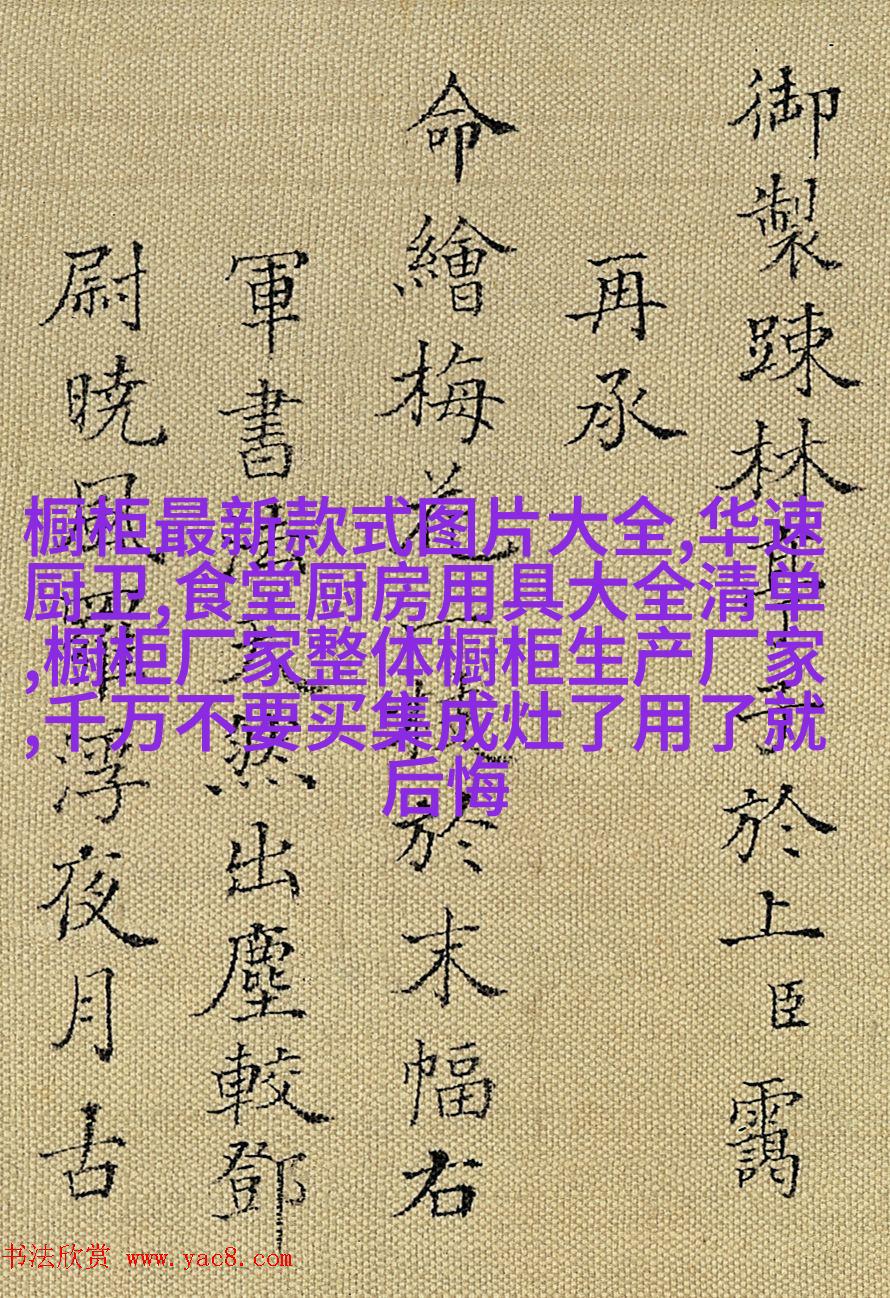 御製踈林
於上臣靄
再承
命繪梅花一枝於末幅右
軍書法夐然出塵較鄧
尉曉風羅浮夜月古
橱柜最新款式图片大全,华速
厨卫,食堂厨房用具大全清单
,橱柜厂家整体橱柜生产厂家
,千万不要买集成灶了用了就
后悔
书法欣赏 www.yac8.com